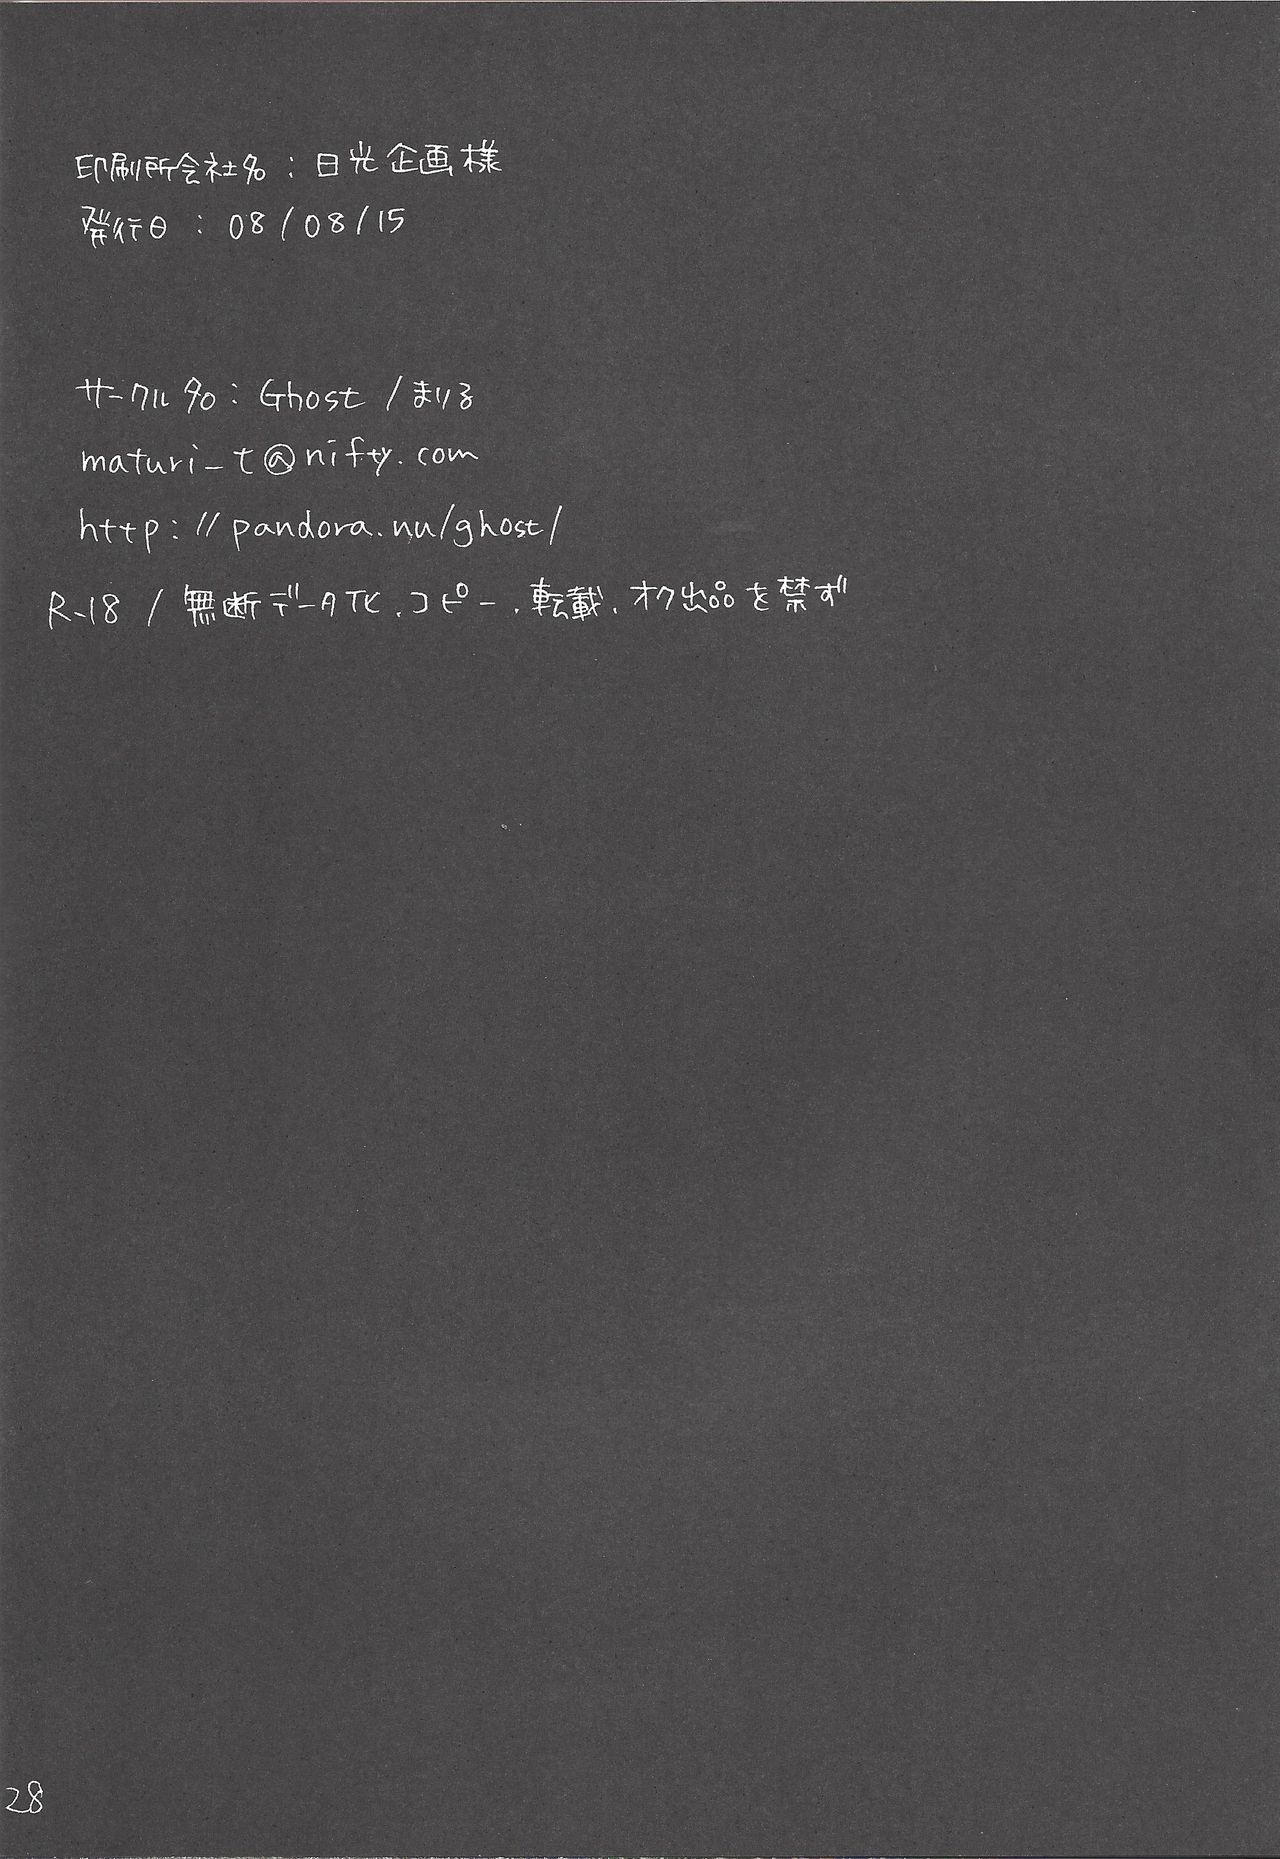 印刷所会社名：日光企画様
発行日：08/08/15
サークル名：Ghost/まりる
maturi_t@nifty.com
http://pandora.nu/ghost/
R-18/無断データ化、コピー、転載、オク出品を禁ず
28